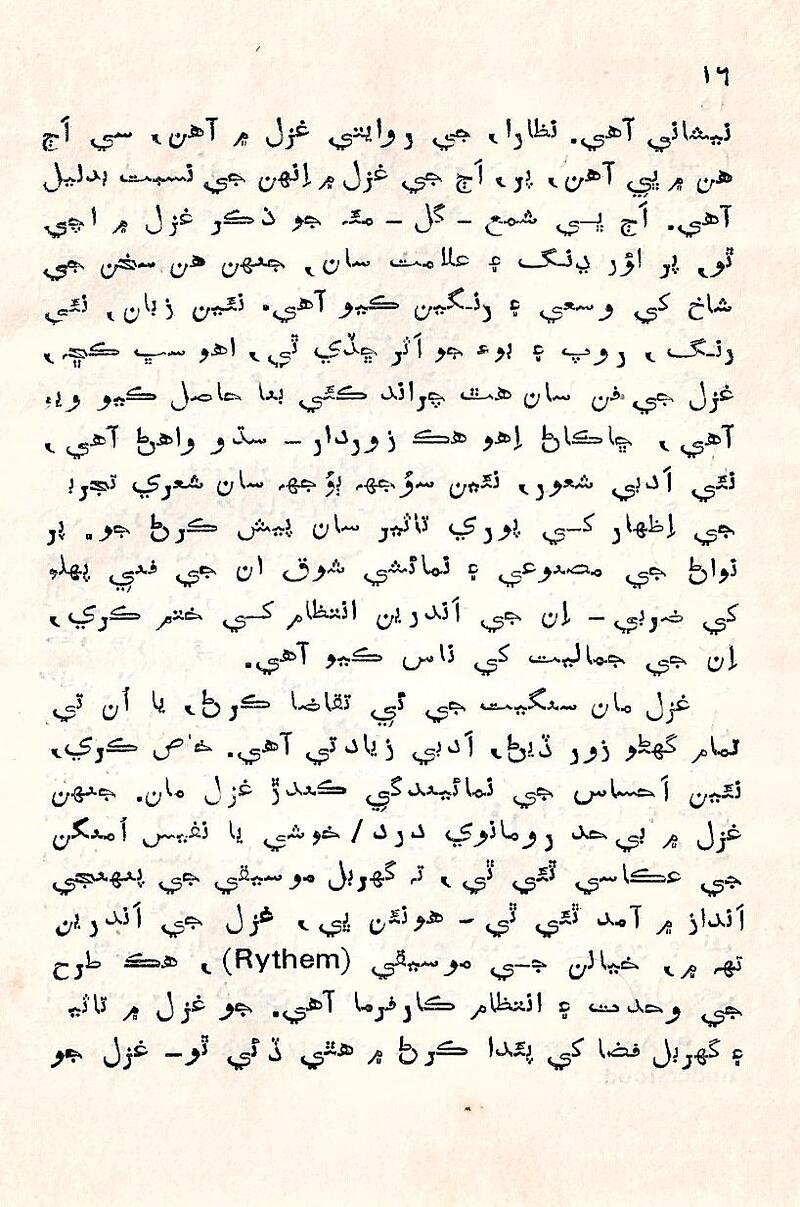 ١٦
نيشاني آهي. نظارا، جي روايتي غزل ۾ آهن، سي اَڄ
هن ۾ پي آهن، پر، اَڄ جي غزل ۾ اِنهن جي نسبت بدليل
آهي. اَڄ پــي شمع ــ گل ــ مئہ جو ذڪر غزل ۾ اچي
ٿو، پر اؤر ڍنگ ۽ علامت سان، جنهن هن سخن جي
شاخ کي وسعي ۽ رنگين ڪيو آهي. نئين زبان، نئي
رنگ، روپ ۽ بوءِ جو اَثر ڇڏي ٿي، اهو سڀ ڪڇہ،
غزل جي فن سان هٿ چراند ڪئي بنا حاصل ڪيو ويو
آهي، ڇاڪاڻ اِهو هڪ زوردار ــ سڌو واهڻ آهي،
نئي اَدبي شعور، نئين سوُجهہ ٻوُجهہ سان شعري تجربہ
جي اِظهار کــي پوري تاثير سان پيش ڪرڻ جو. پر
نواڻ جي مصنوعي ۽ نمائشي شوق ان جي فني پهلو
کي ضربي ــ اِن جي اَندرين انتظام کــي ختم ڪري،
اِن جي جماليت کي ناس ڪيو آهي.
غزل مان سنگيت جي ئي تقاضا ڪرڻ، يا اُن تي
تمام گهڻو زور ڏيڻ، اَدبي زيادتي آهي. خاص ڪري،
نئين اَحساس جي نمائيندگي ڪندڙ غزل مان. جنهن
غزل ۾ بي حد رومانوي درد/خوشي يا نفيس اُمنگن
جي عڪاسي ٿئي ٿي، تہ گهربل موسيقي جي پنهنجي
اَنداز ۾ آمد ٿئي ٿي ــ هونئن پي، غزل جي اَندرين
تهہ ۾، خيالن جــي موسيقي (Rythem)، هڪ طرح
جي وحدت ۽ انتظام ڪارفرما آهي. جو غزل ۾ تاثير
۽ گهربل فضا کي پئدا ڪرڻ ۾ هٿي ڏئي ٿو ــ غزل جو